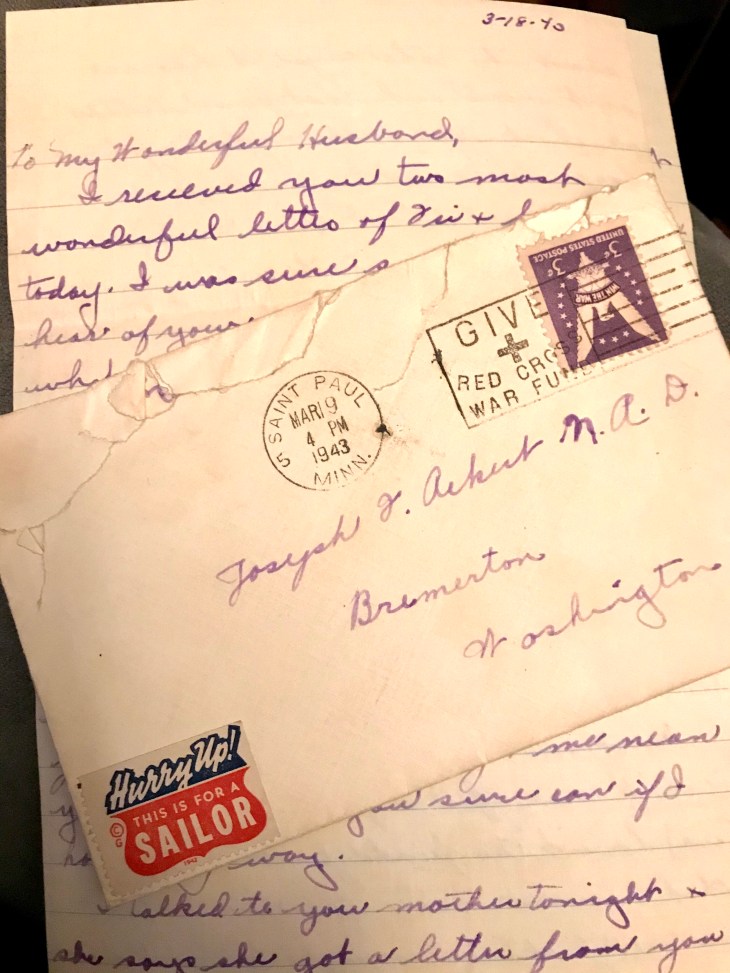 3-18-43
To My Wonderful Husband,
I recieved you two most
wonderful letters of Fri +
today. I was sure
hear of your
UNITED STATES POSTAGE
3¢ 3¢
WIN THE WAR
GIVE
RED CROSS
WAR FUND
SAINT PAUL
MAR 19
4 PM
1943
5 MINN.
Joseph F. Ackert N. A. D.
Bremerton
Washington
Hurry Up!
THIS IS FOR A
SAILOR
© G
1942
me mean
you sure can if I
way.
I talked to you mother tonight +
she says she got a letter from you